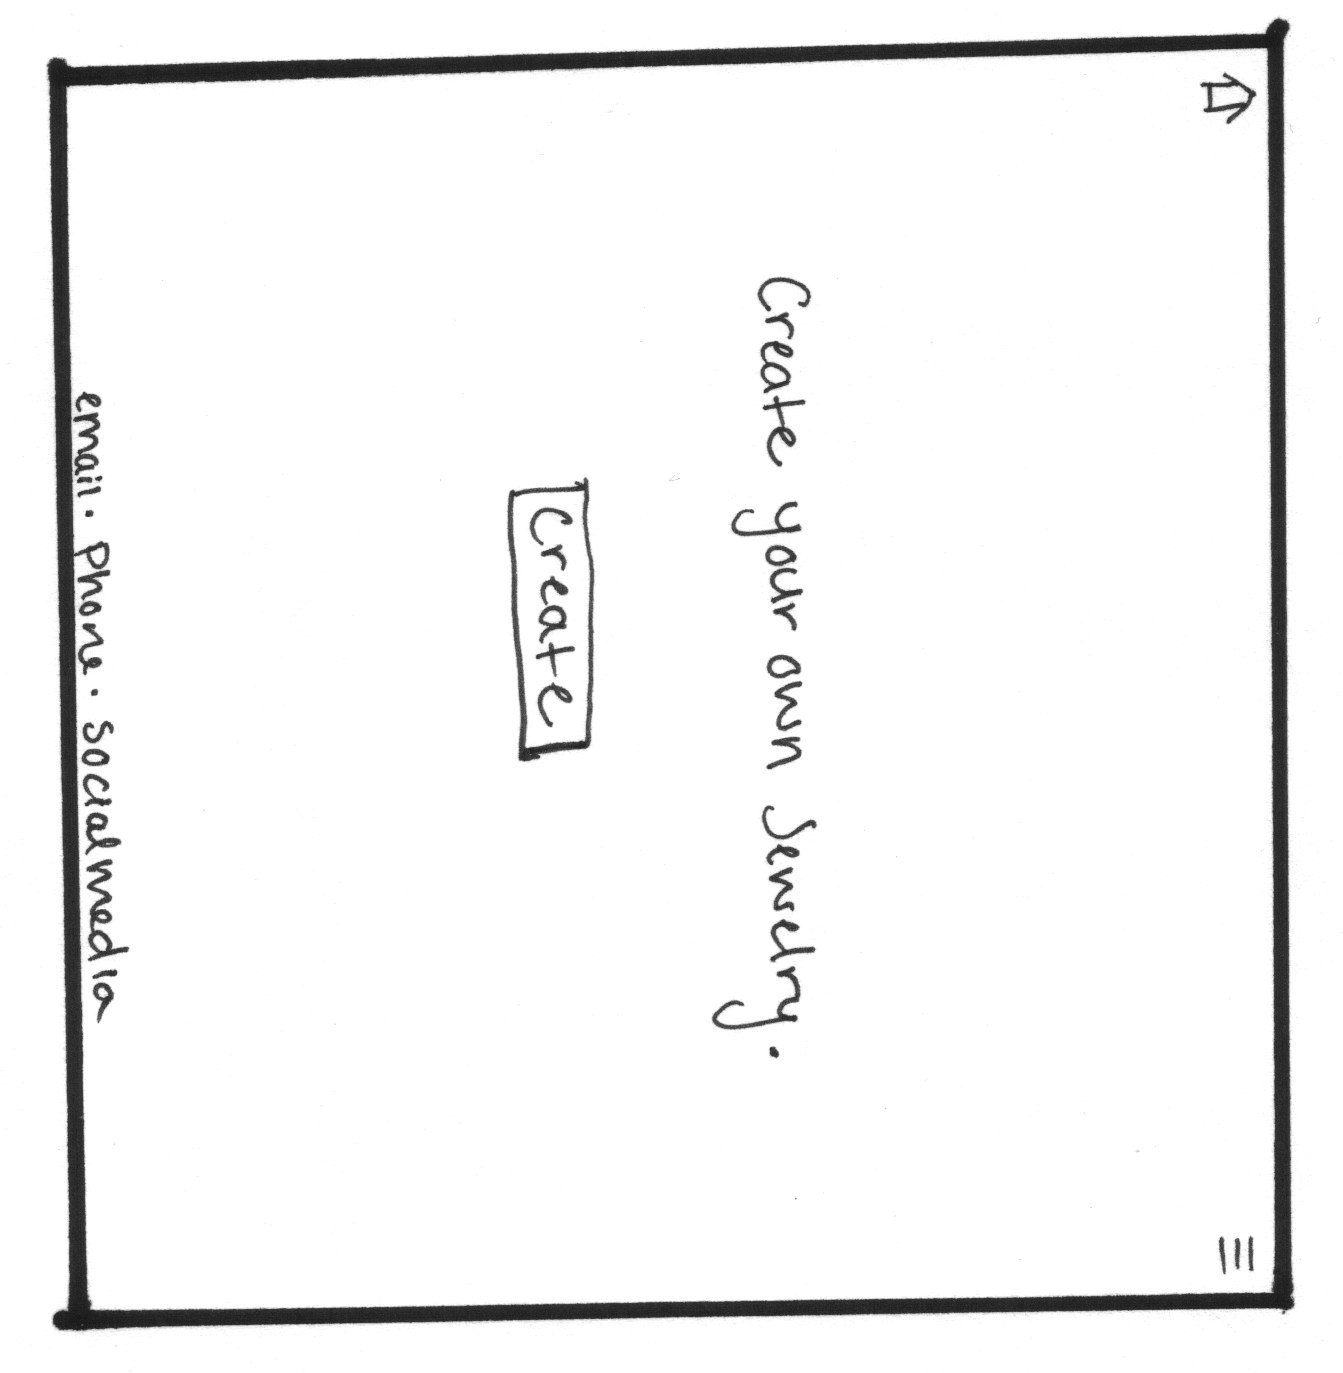 Create your own Jewelry.
Create
email. Phone. socialmedia